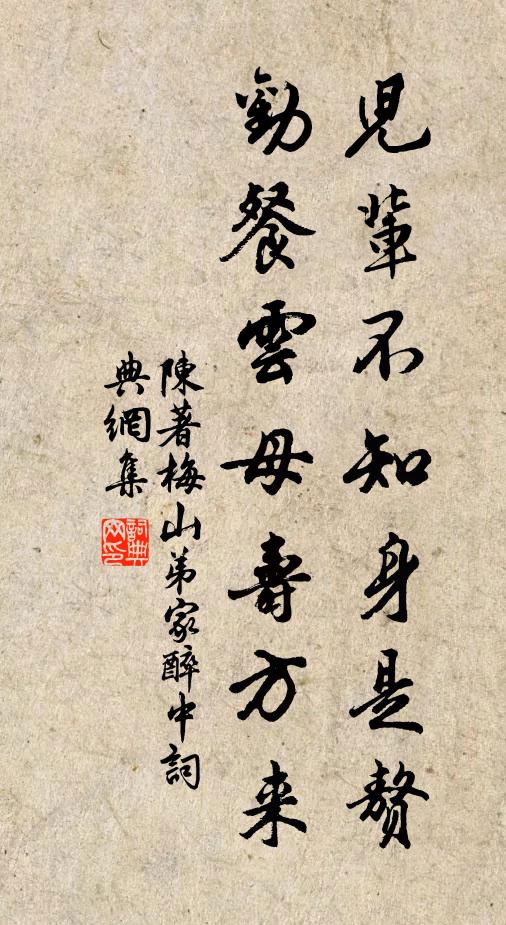 兒輩不知身是贅
勸餐雲母壽方来
陳著梅山弟家醉中詞
典網集
詞典網印